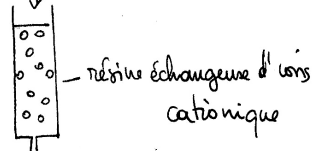 résine échangeuse d'ions
cationique